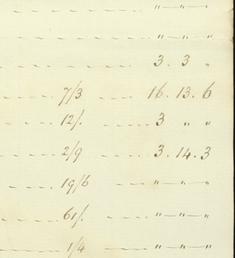 " — " — "
" — " — "
3 . 3 "
7/3 16 . 13 . 6
12/. 3 " "
2/9 3 . 14 . 3
19/6 " — " — "
61/. " — " — "
1/4 " — " — "